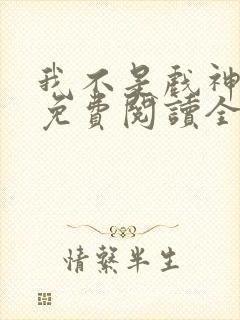 我不是戲神
免費閱讀全
情繫半生